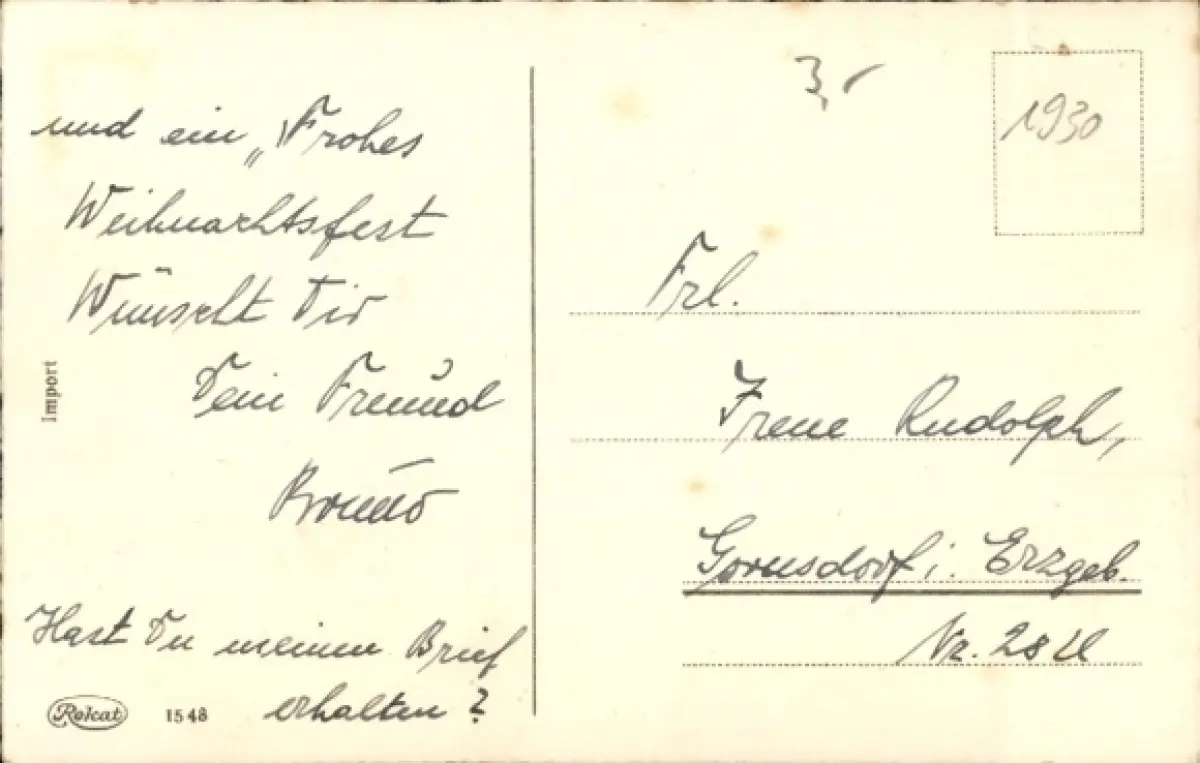 und ein „Frohes
Weihnachtsfest
Wünscht Dir
Dein Freund
Bruno
Hast Du meinen Brief
erhalten?
Import
Rokat 1548
1930
Frl.
Irene Rudolph,
Gornsdorf i. Erzgeb.
Nr. 28